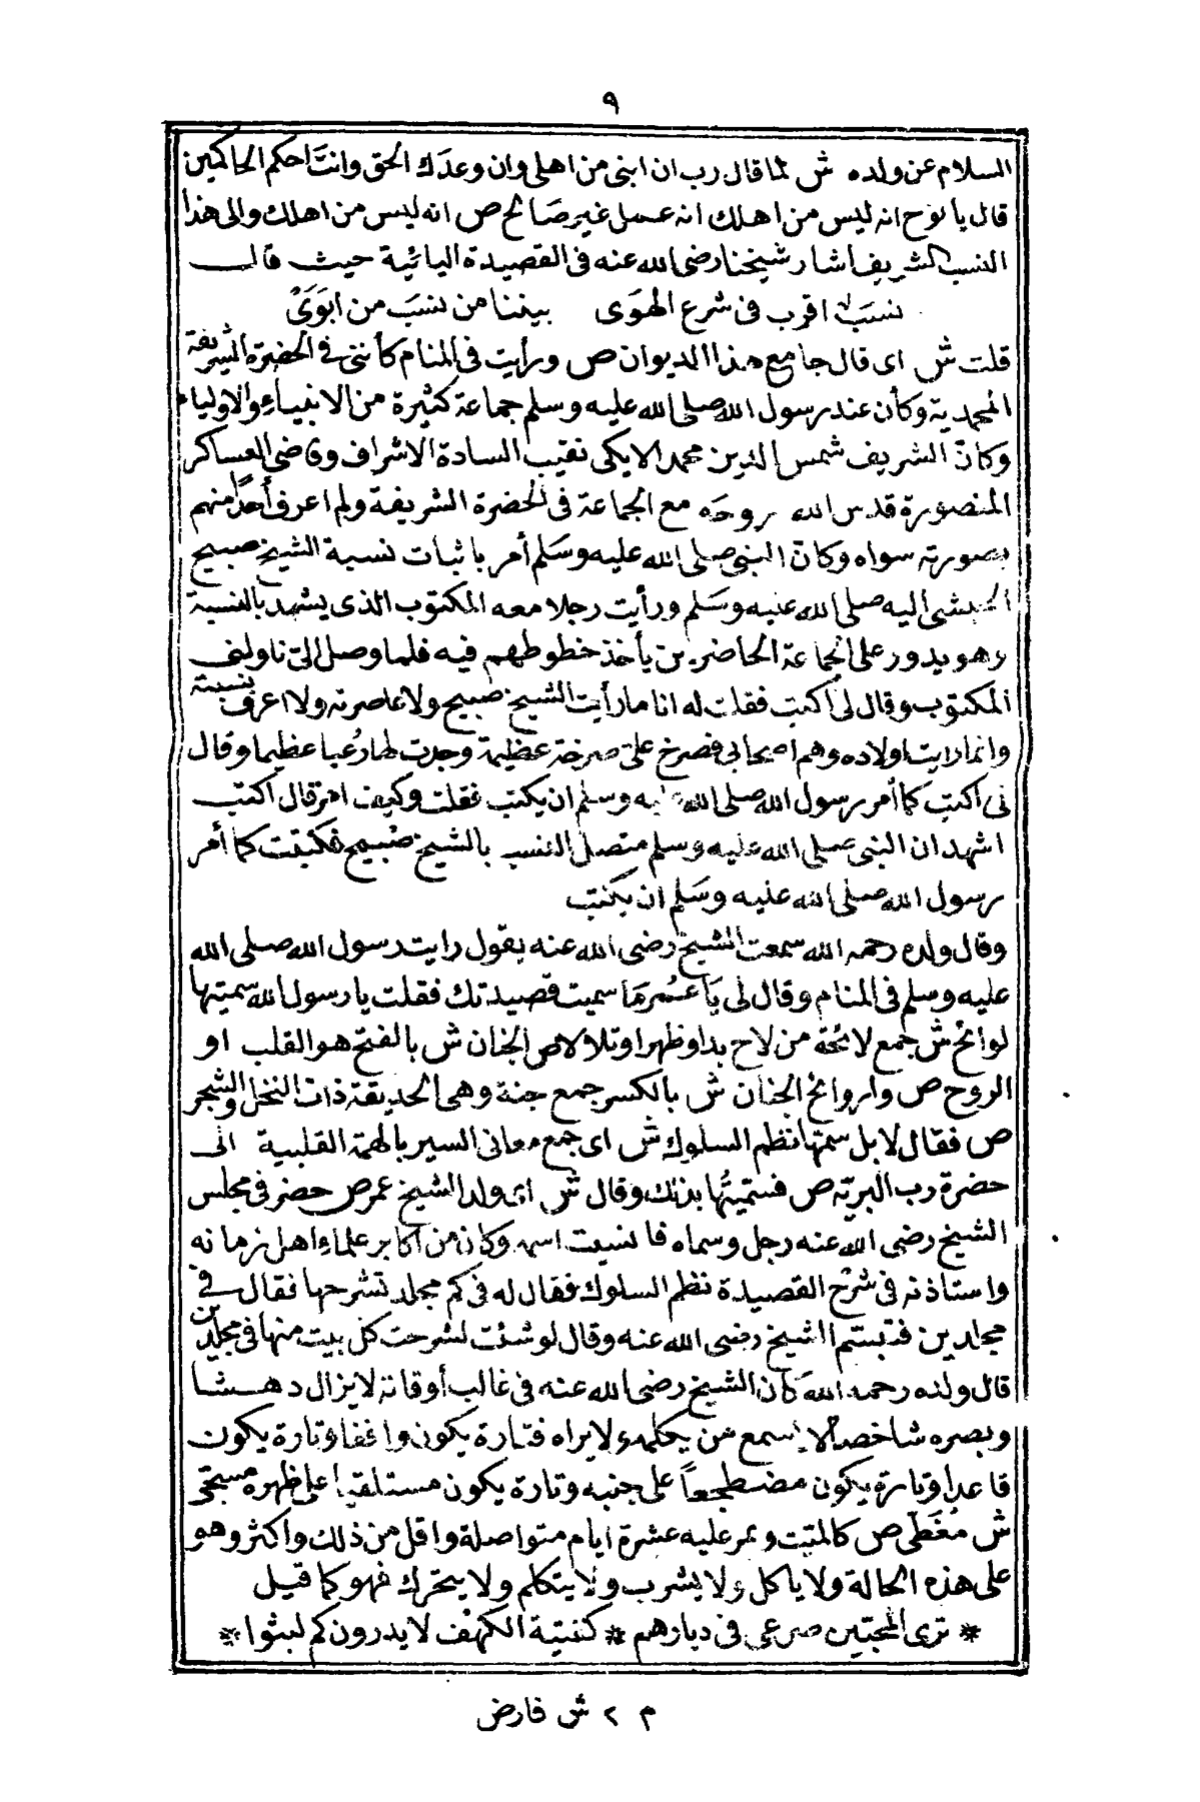 ٩
السلام عن ولده ش لما قال رب ان ابنى من اهلى وان وعدَك الحق وانتَ احكم الحاكمين
قال يا نوح انه ليس من اهلك انه عمل غير صَالح ص انه ليس من اهلك والى هذا
النسب الشريف اشار شيخنا رضى الله عنه فى القصيدة اليائية حيث قال
نسَبٌ اقرب فى شرع الهوَى بيننا من نسَبَ من ابوَىّ
قلت ش اى قال جامع هذا الديوان ص ورأيت فى المنام كأننى فى الحضرة الشريفة
المحمدية وكأن عند رسول الله صلى الله عليه وسلم جماعة كثيرة من الانبياءِ والاولياء
وكانّ الشريف شمس الدين محمد الايكى نقيب السادة الاشراف وقاضى العساكر
المنصورة قدس الله روحَه مع الجماعة فى الحضرة الشريفة ولم اعرف أحدًا منهم
بصورته سواه وكانّ النبى صلى الله عليه وسَلم أمر باثبات نسبة الشيخ صبيح
الحبشى اليه صلى الله عليه وسَلم ورأيت رجلا معه المكتوب الذى يشهد بالنسبة
وهو يدور على الجماعة الحاضرين يأخذ خطوطهم فيه فلما وصل الىّ ناولنى
المكتوب وقال لى أكتب فقلت له انا ما رأيت الشيخ صبيح ولا عاصرته ولا اعرف نسبته
وانما رايت اولاده وهم اصحابى فصرخ علىّ صرخة عظيمة وجدت لها رُعبا عظيما وقال
لى اكتب كما أمر رسول الله صلى الله عليه وسلم ان يكتب فقلت وكيف امر قال اكتب
اشهد ان النبى صلى الله عليه وسلم متصل النسب بالشيخ صْبيح فكتبت كما أمر
رسول الله صلى الله عليه وسَلم ان يكتب
وقال ولده رحمه الله سمعت الشيخ رضى الله عنه يقول رايت رسول الله صلى الله
عليه وسلم فى المنام وقال لى يَا عُمر مَا سميت قصيدتك فقلت يا رسول الله سميتها
لوائح ش جمع لائحة من لاح بدا وظهر او تلألأ ص الجنان ش بالفتح هو القلب او
الروح ص وروائح الجنان ش بالكسر جمع جنة وهى الحديقة ذات النخل والشجر
ص فقال لا بل سمّها نظم السلوك ش اى جمع معانى السير بالهمة القلبية الى
حضرة رب البريّة ص فسمّيتُها بذلك وقال ش اى ولد الشيخ عمر ص حضر فى مجلس
الشيخ رضى الله عنه رجل وسماه فانسيت اسمه وكان من اكابر علماءِ اهل زمانه
واستاذنه فى شرْح القصيدة نظم السلوك فقال له فى كم مجلد تشرحها فقال فى
مجلدين فتبسّم الشيخ رضى الله عنه وقال لو شئت لشرحت كل بيت منها فى مجلدين
قال ولده رحمه الله كان الشيخ رضى الله عنه فى غالب أوقاته لا يزال دهشا
وبصره شاخصا لا يسمع من يكلمه ولا يراه فتارة يكون واقفا وتارة يكون
قاعدا وتارة يكون مضطجعاً على جنبه وتارة يكون مستلقيا على ظهره مسبحّى
ش مُغَطّى ص كالميت ويمر عليه عشرة ايام متواصلة واقل من ذلك واكثر وهو
على هذه الحالة ولا يأكل ولا يشرب ولا يتكلم ولا يتحرك فهو كما قيل
* ترى المحبّين صرعى فى ديارهم * كفتية الكهف لا يدرون كم لبثوا *
م ٢ ش فارض